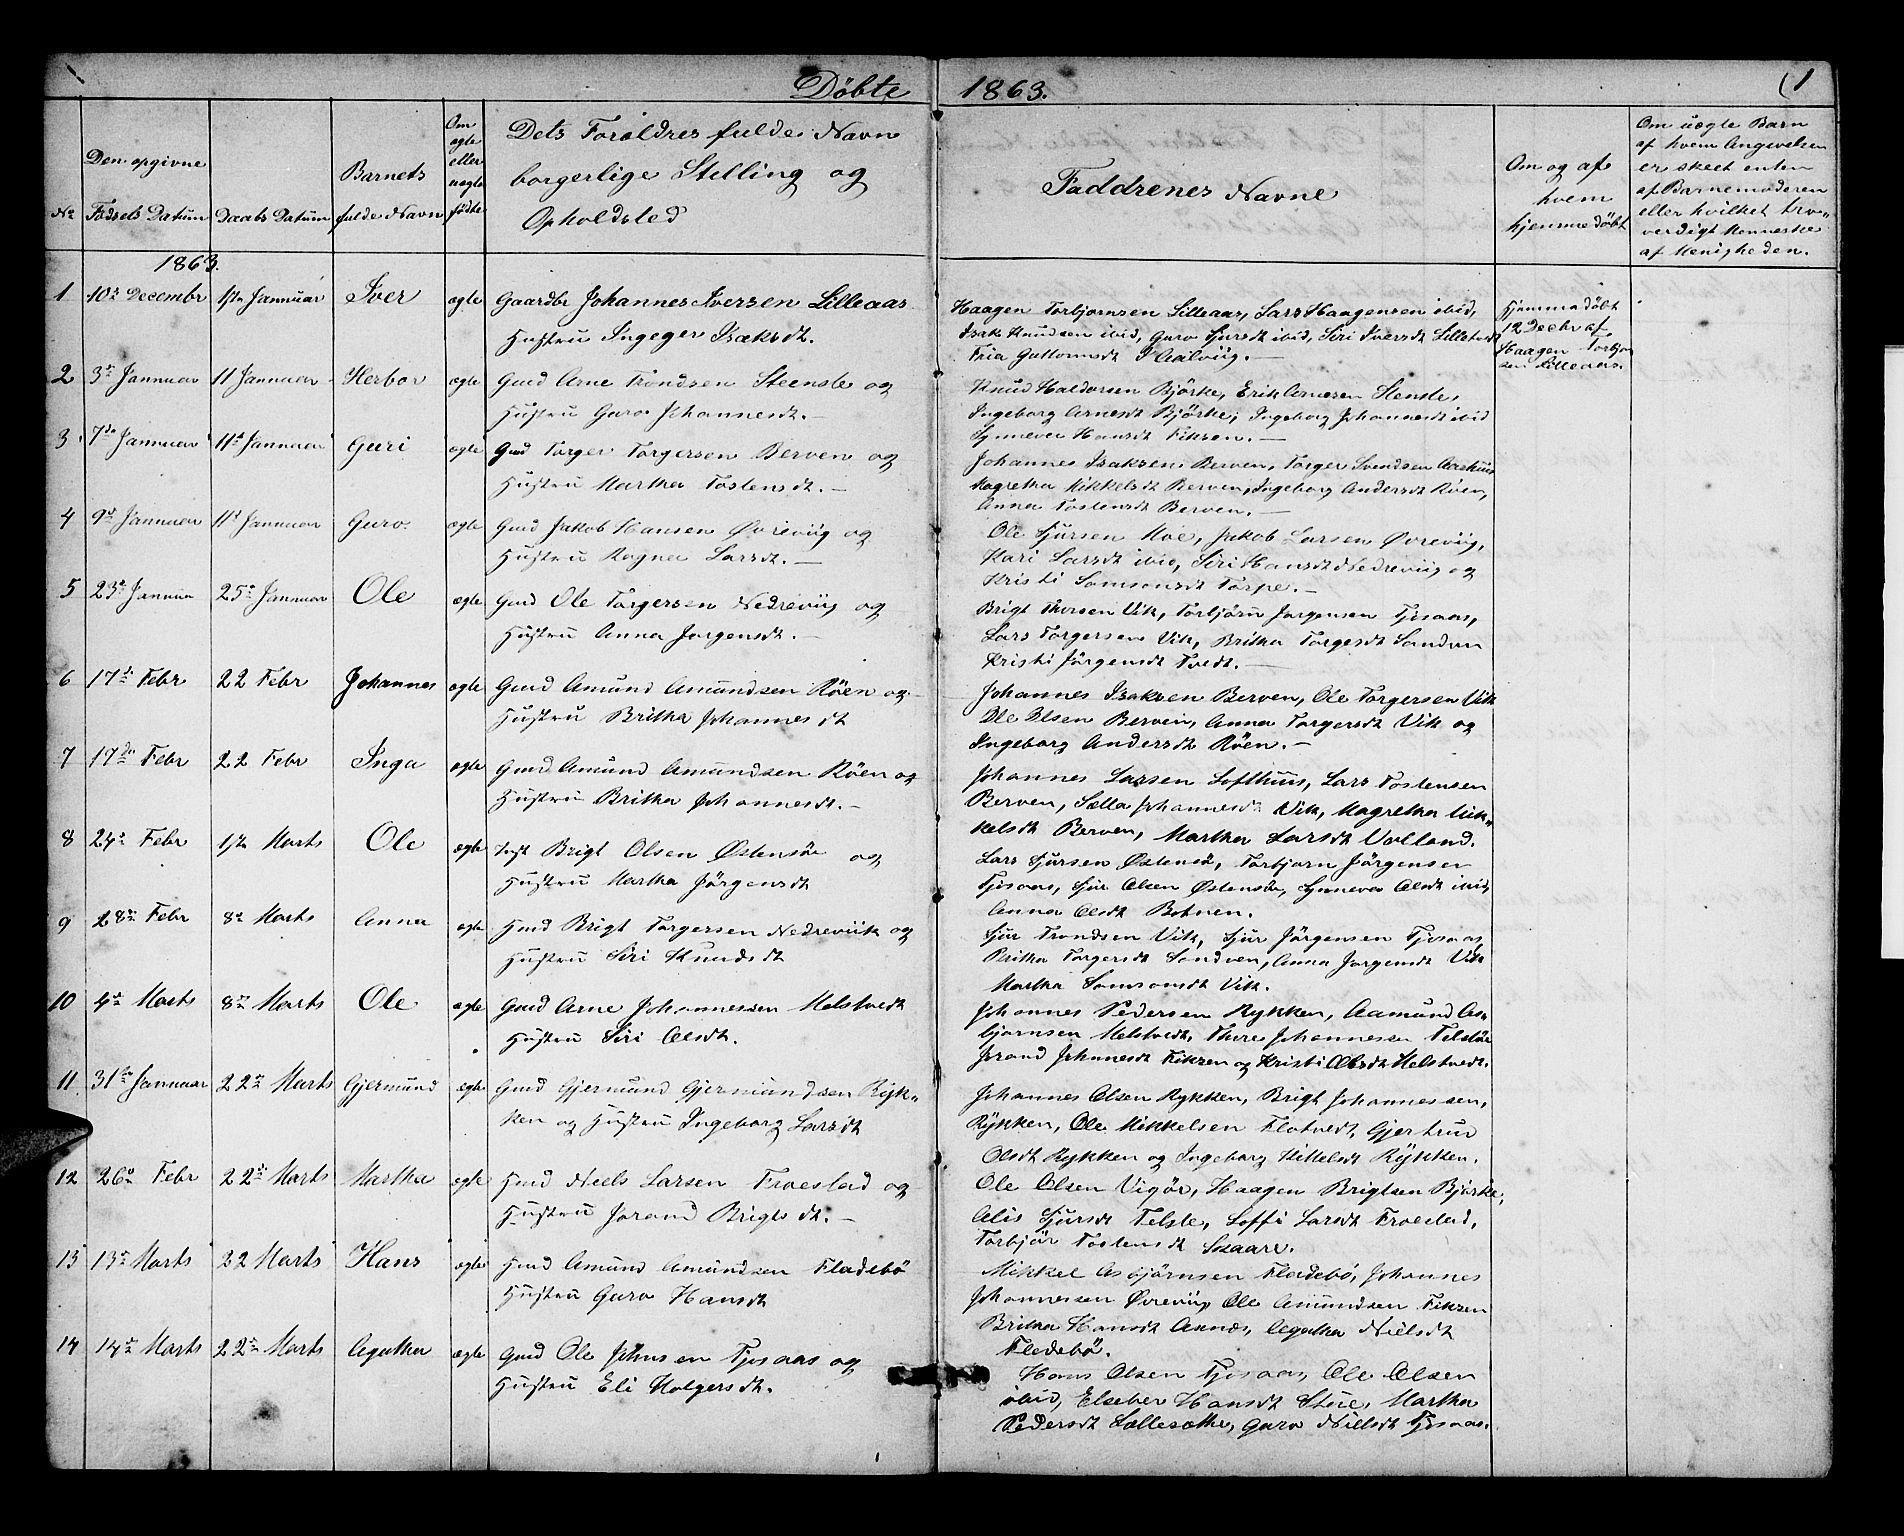 Döbte 1863. (1
No
Den opgivne Fødsels Datum
Daabs Datum
Barnets fulde Navn
Om ægte eller uægte fødte
Dets Foreldres fulde Navn borgerlige Stilling og Opholdsted
Faddrenes Navne
Om og af hvem hjemmedöbt
Om uægte Barn af hvem Angivelsen er skeet enten af Barnemoderen eller hvilket troværdigt Menneske af Menigheden.
1863.
1 10de Decembr 1ste Januar Iver ægte Gaardbr Johannes Iversen Lilleaas
Hustru Ingeger Isaksdt.
Haagen Torbjornsen Lilleaas, Lars Haagensen ibid,
Isak Knudsen ibid, Guro Sjursdt ibid, Siri Iversdt Lilletvedt
Guttormsdt Aalviig.
Hjemmedöbt
12 Decbr af
Haagen Torbjorn
sen Lilleaas.
2 3de Januar 11 Januar Herbor ægte Gmd Arne Trondsen Steensle og
Hustru Guro Johannesdt.
Knud Haldorsen Björke, Erik Arnesen Stensle,
Ingeborg Arnesdt Björke, Ingeborg Johannesdt ibid
Synneva Hansdt Fiksen.
3 7de Januar 11te Januar Guri ægte Gmd Torger Torgersen Berven og
Hustru Martha Tostensdt.
Johannes Isaksen Berven, Torger Svendsen Aashuus
Magretha Mikkelsdt Berven, Ingeborg Andersdt Röen,
Anna Tostensdt Berven.
4 9de Januar 11te Januar Guro ægte Gmd Jakob Hansen Øvreviig og
Hustru Ragna Larsdt.
Ole Sjursen Moe, Jakob Larsen Øvreviig,
Kari Larsdt ibid, Siri Hansdt Nedreviig og
Kristi Samsonsdt Torpe.
5 23de Januar 25de Januar Ole ægte Gmd Ole Torgersen Nedreviig og
Hustru Anna Jorgensdt.
Brigt Thorsen Vik, Torbjörn Jorgensen Tjosaas,
Lars Torgersen Vik, Britha Torgersdt Sandven
Kristi Jörgensdt Tvedt.
6 17de Febr 22 Febr Johannes ægte Gmd Amund Amundsen Röen og
Hustru Britha Johannesdt
Johannes Isaksen Berven, Ole Torgersen Vik
Ole Olsen Berven, Anna Torgersdt Vik og
Ingeborg Andersdt Röen.
7 17de Febr 22 Febr Inga ægte Gmd Amund Amundsen Röen og
Hustru Britha Johannesdt.
Johannes Larsen Lofthuus, Lars Tostensen
Berven, Sella Johannesdt Vik, Magretha Mik-
kelsdt Berven, Martha Larsdt Valland.
8 24de Febr 1ste Marts Ole ægte Inst Brigt Olsen Østensöe og
Hustru Martha Jörgensdt
Lars Sjursen Østensö, Torbjorn Jörgensen
Tjosaas, Sjur Olsen Østensöe, Synneva Olsdt ibid,
Anna Olsdt Botnen.
9 28de Febr 8de Marts Anna ægte Hmd Brigt Torgersen Nedreviik og
Hustru Siri Knudsdt
Sjur Trondsen Vik, Sjur Jörgensen Tjosaas,
Britha Torgersdt Sandven, Anna Jorgensdt Vik
Martha Samsonsdt Vik.
10 4de Marts 8de Marts Ole ægte Gmd Arne Johannessen Melstvedt
Hustru Siri Olsdt.
Johannes Pedersen Rykken, Aamund As-
bjornsen Melstvedt, Thore Johannessen Telstöe
Jorand Johnnesdt Fikzen og Kristi Olsdt Melstvedt.
11 31te Januar 22de Marts Gjermund ægte Gmd Gjermund Gjermundsen Ryk-
ken og Hustru Ingeborg Larsdt
Johannes Olsen Rykken, Brigt Johannessen,
Rykken, Ole Mikkelsen Flotvedt, Gjertrud
Olsdt Rykken og Ingeborg Kittelsdt Rykken.
12 26de Febr 22de Marts Martha ægte Hmd Neels Larsen Froestad og
Hustru Jorand Brigtsdt.
Ole Olsen Vigör, Haagen Brigtsen Björke,
Alis Sjursdt Telste, Soffi Larsdt Froestad,
Torbjör Tostensdt Skaare.
13 13de Marts 22 Marts Hans ægte Hmd Amund Amundsen Fladebö
Hustru Guro Hansdt
Mikkel Asbjörnsen Fladebö, Johannes
Johannessen Øvreviig Ole Amundsen Fikzen
Britha Hansdt Aknæs, Agatha Nielsdt
Fladebö.
14 14de Marts 22de Marts Agatha ægte Gmd Ole Johnsen Tjosaas og
Hustru Eli Holgersdt.
Hans Olsen Tjosaas, Ole Olsen
ibid, Elseber Hansdt Stue, Martha
Pedersdt Sallesæthe, Guro Nielsdt Tjosaas.